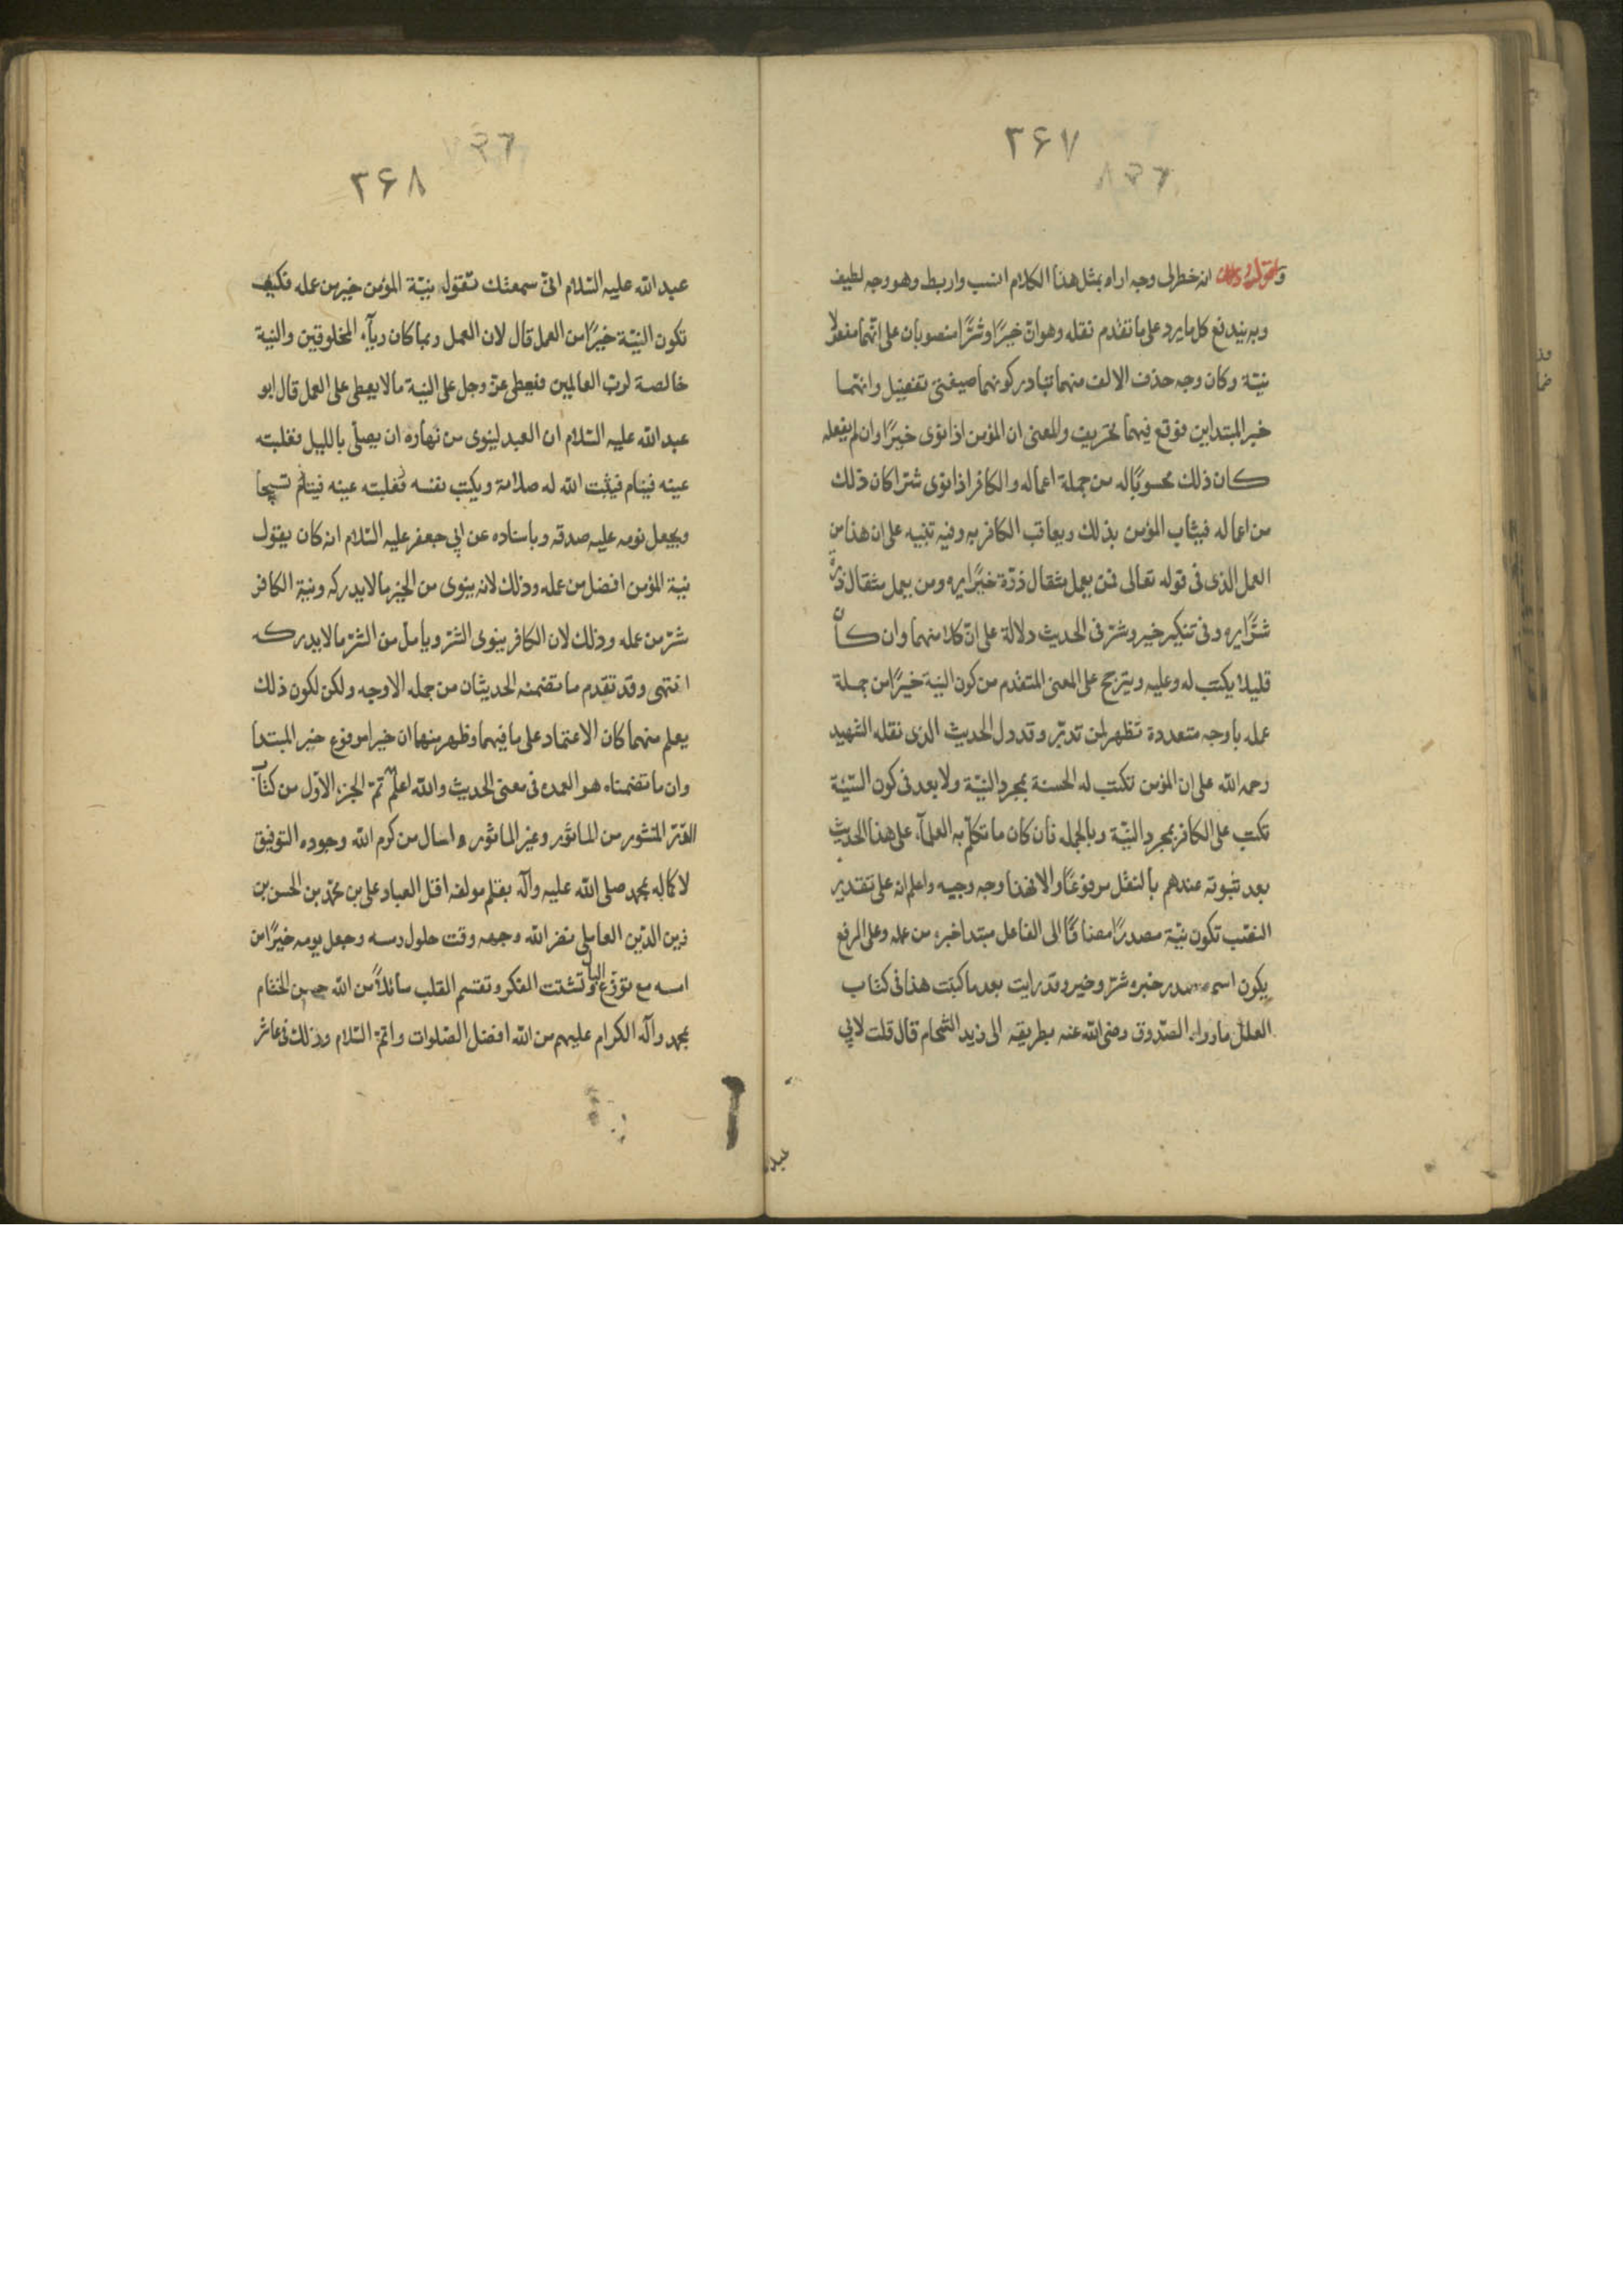 ۳۶۷
انه خطر لى وجه اراه بمثل هذا الكلام انسب واربط وهو وجه لطيف
وبه يندفع كل ما يرد على ما تقدم نقله وهو ان خيرًا وشرًّا منصوبان على انهما مفعولا
نيّة وكان وجه حذف الالف منهما تبادر كونهما صيغتى تفضيل وانهما
خبر المبتداين فوقع فيهما تحريف والمعنى ان المؤمن اذا نوى خيرًا وان لم يفعله
كان ذلك محسوبًا له من جملة اعماله والكافر اذا نوى شرّا كان ذلك
من اعماله فيثاب المؤمن بذلك ويعاقب الكافر به وفيه تنبيه على ان هذا من
العمل الذى فى قوله تعالى فمن يعمل مثقال ذرّة خيرًا يره ومن يعمل مثقال ذرة
شرًّا يره وفى تنكير خير وشرّ فى الحديث دلالة على انّ كلا منهما وان كان
قليلا يكتب له وعليه ويترجح على المعنى المتقدم من كون النية خيرًا من جملة
عمله باوجه متعددة تظهر لمن تدبّر وقد دل الحديث الذى نقله الشهيد
رحمه الله على ان المؤمن تكتب له الحسنة بمجرد النيّة ولا بعد فى كون السيّئة
تكتب على الكافر بمجرد النيّة وبالجمله فان كان ما تكلّم به العلمآء على هذا الحديث
بعد ثبوته عندهم بالنقل مرفوعًا والا فهذا وجه وجيه واعلم انه على تقدير
النصب تكون نيّة مصدرًا مضافًا الى الفاعل مبتدا خبره من عمله وعلى الرفع
يكون اسم مصدر خبره شرّ وخير وقد رايت بعد ما كتبت هذا فى كتاب
العلل ما رواه الصّدوق رضى الله عنه بطريقه الى زيد الشحام قال قلت لابي
عبد
۳۶۸
عبد الله عليه السّلام انى سمعتك تقول نيّة المؤمن خير من عمله فكيف
تكون النيّة خيرًا من العمل قال لان العمل ربما كان ريآء المخلوقين والنية
خالصة لربّ العالمين فيعطى عزّ وجل على النية ما لا يعطى على العمل قال ابو
عبد الله عليه السّلام ان العبد لينوى من نهاره ان يصلّى بالليل فتغلبه
عينه فينام فيثبت الله له صلاته ويكتب نفسه تسبيحا
ويجعل نومه عليه صدقه وباسناده عن ابي جعفر عليه السّلام انه كان يقول
نيّة المؤمن افضل من عمله وذلك لانه ينوى من الخير ما لا يدركه ونية الكافر
شرّ من عمله وذلك لان الكافر ينوى الشرّ ويامل من الشرّ ما لا يدركه
انتهى وقد تقدم ما تضمنه الحديثان من جمله الاوجه ولكن لكون ذلك
يعلم منهما كان الاعتماد على ما فيهما وظهر منها ان خير مرفوع خبر المبتدا
وان ما تضمناه هو العمده فى معنى الحديث والله اعلم تمّ الجزء الاوّل من كتاب
الدرّ المنثور من الماثور وغير الماثور واسال من كرم الله وجوده التوفيق
لاكماله بمحمد صلى الله عليه وآله بقلم مولفه اقل العباد على بن محمّد بن الحسن بن
زين الدّين العاملى نضر الله وجهه وقت حلول رمسه وجعل يومه خيرًا من
امسه مع توزّع البال وتشتت الفكر وتقسم القلب سائلاً من الله حسن الختام
بمحمد وآله الكرام عليهم من الله افضل الصّلوات واتمّ السّلام وذلك فى عاشر